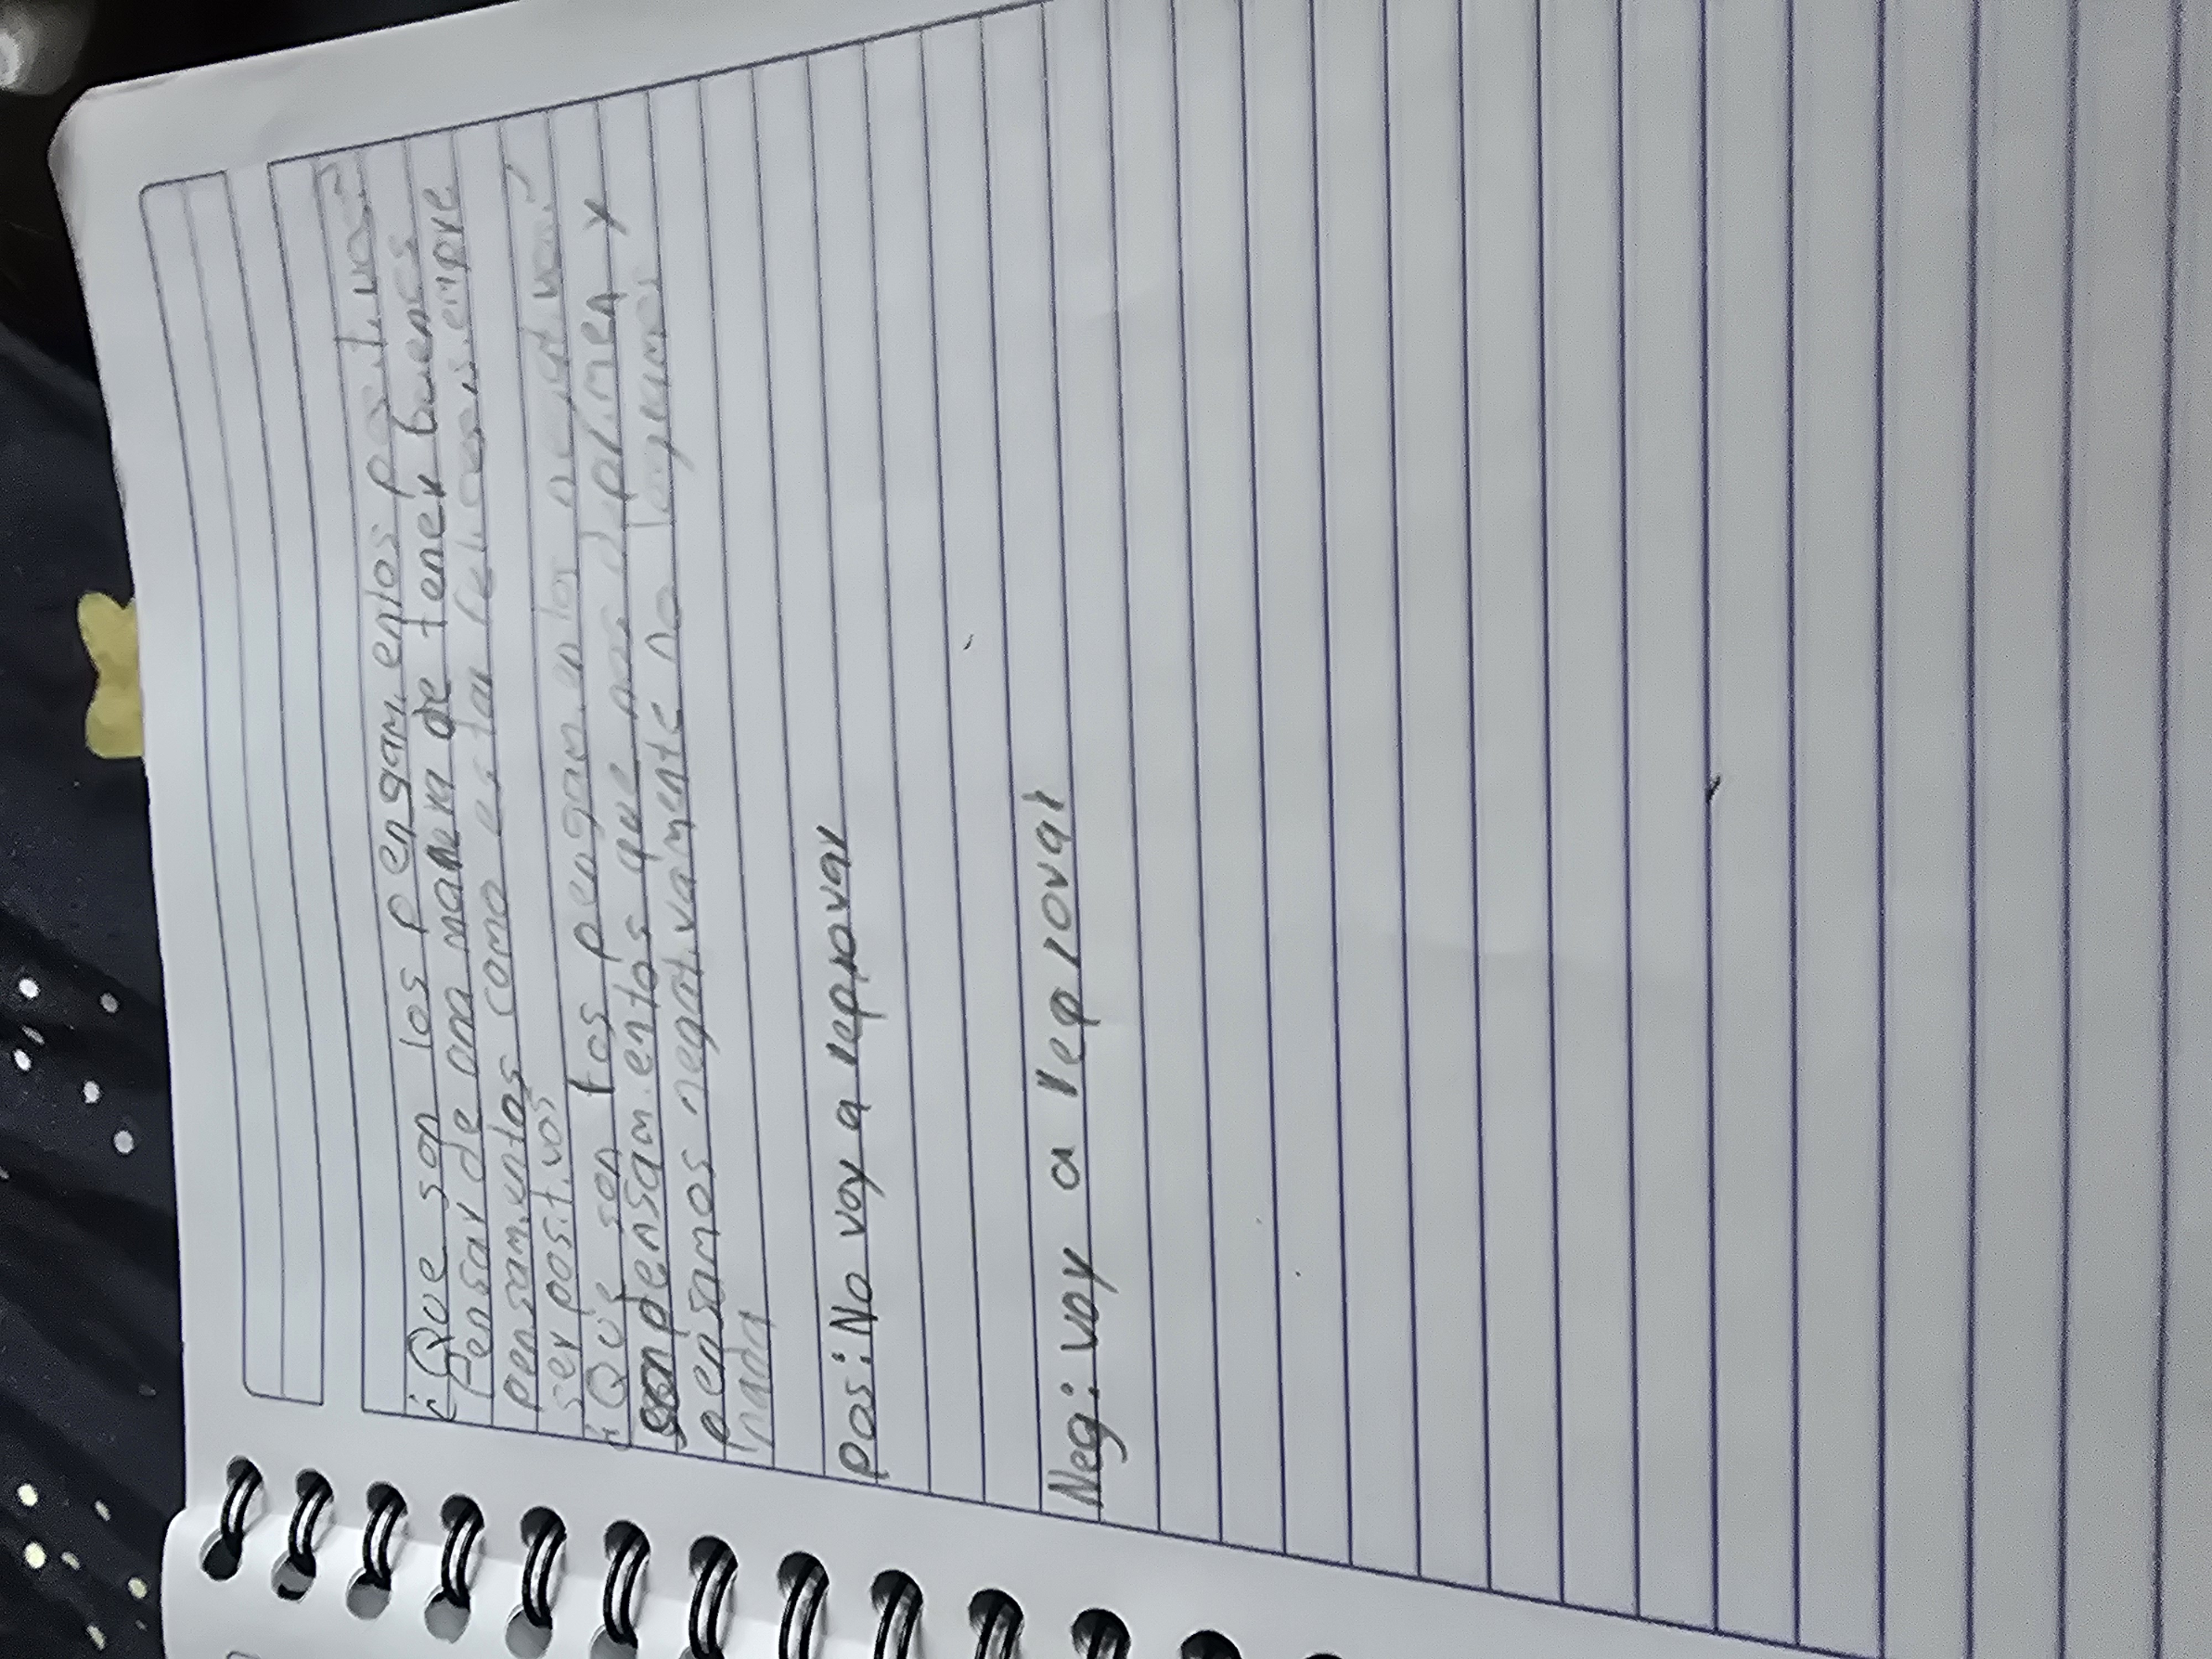 ¿Que son los pengamientos positivos?
Pensar de una manera de tener buenos
pensamientos como estar felices siempre
ser positivos
¿Que son los pengamientos negativos?
son pensamientos que nos deprimen y
pensamos negativamente no logramos
nada
Pos: No voy a reprovar
Neg: voy a reprovar